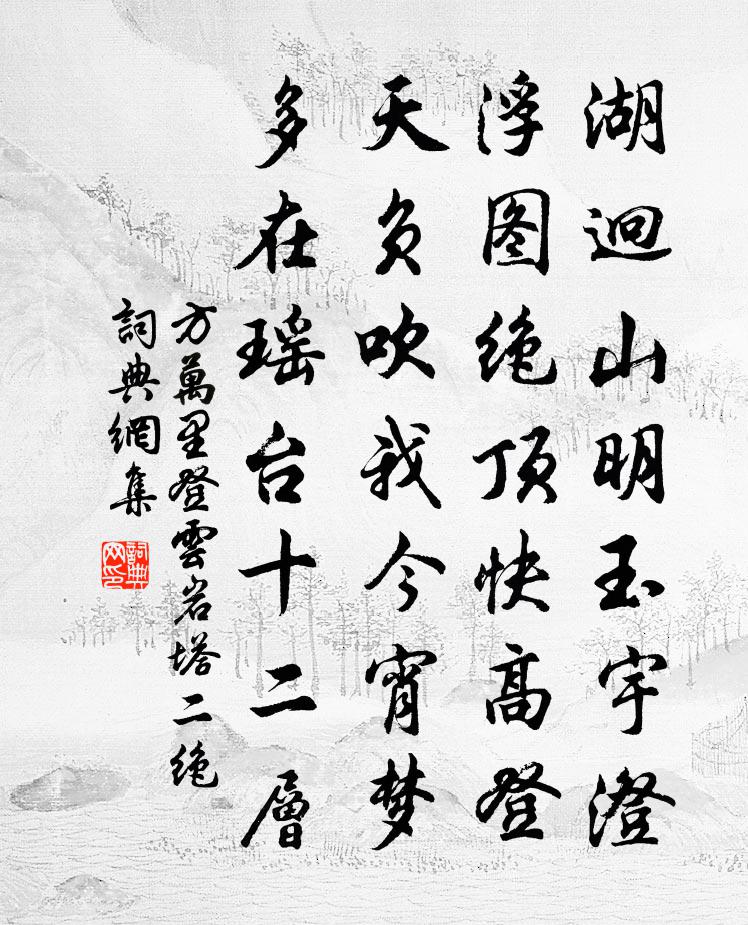 湖迥山明玉宇澄
浮图绝顶快高登
天负吹我今宵梦
多在瑶台十二層
方萬里登雲岩塔二絶
詞典網集
詞典網印